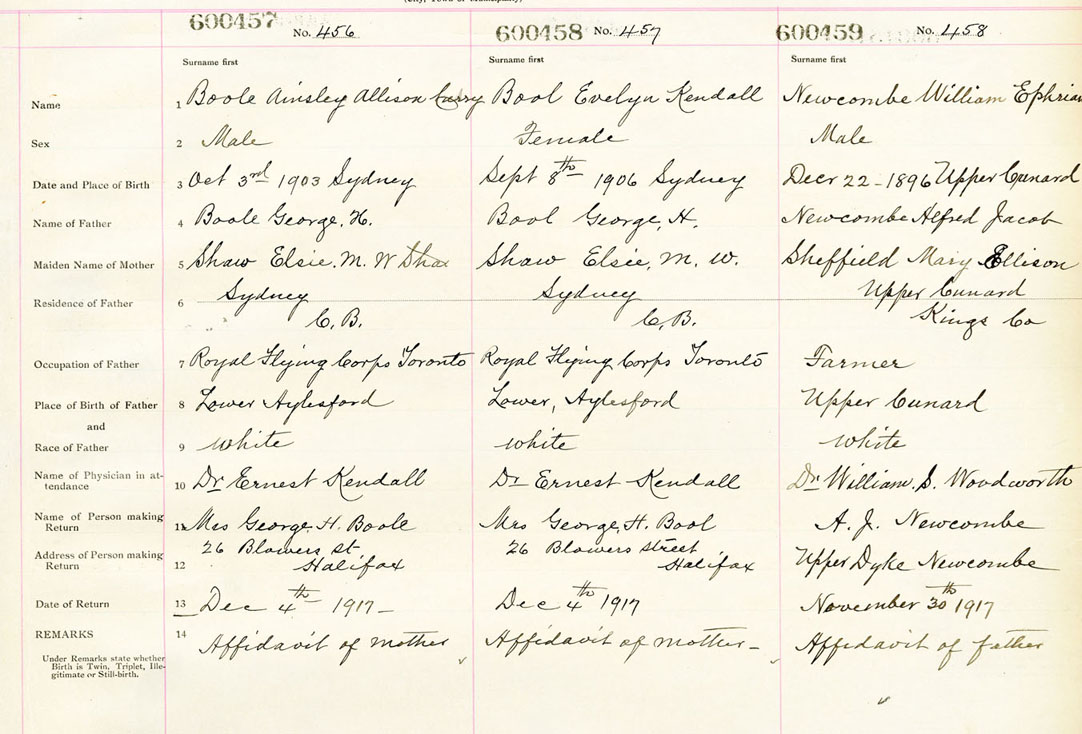 600457 No. 456 600458 No. 457 600459 No. 458
Surname first Surname first Surname first
Name 1 Boole Ainsley Allison Curry Bool Evelyn Kendall Newcombe William Ephriam
Sex 2 Male Female Male
Date and Place of Birth 3 Oct 3rd 1903 Sydney Sept 8th 1906 Sydney Decr 22 - 1896 Upper Cunard
Name of Father 4 Boole George. H. Bool George, H. Newcombe Alfred Jacob
Maiden Name of Mother 5 Shaw Elsie. M. W Shaw Elsie, M. W. Sheffield Mary Ellison
Residence of Father 6 Sydney Sydney Upper Cunard
C. B. C, B. Kings Co
Occupation of Father 7 Royal Flying Corps Toronto Royal Flying Corps Toronto Farmer
Place of Birth of Father 8 Lower Aylesford Lower, Aylesford Upper Cunard
and
Race of Father 9 white white white
Name of Physician in at- 10 Dr Ernest Kendall Dr Ernest Kendall Dr William. S. Woodworth
tendance
Name of Person making 11 Mrs George. H. Boole Mrs George, H. Bool A. J. Newcombe
Return
Address of Person making 26 Blowers St 26 Blowers street Upper Dyke Newcombe
Return 12 Halifax Halifax
Date of Return 13 Dec 4th 1917 - Dec 4th 1917 November 30th 1917
REMARKS 14 Affidavit of mother Affidavit of mother - Affidavit of father
Under Remarks state whether
Birth is Twin, Triplet, Ille-
gitimate or Still-birth.